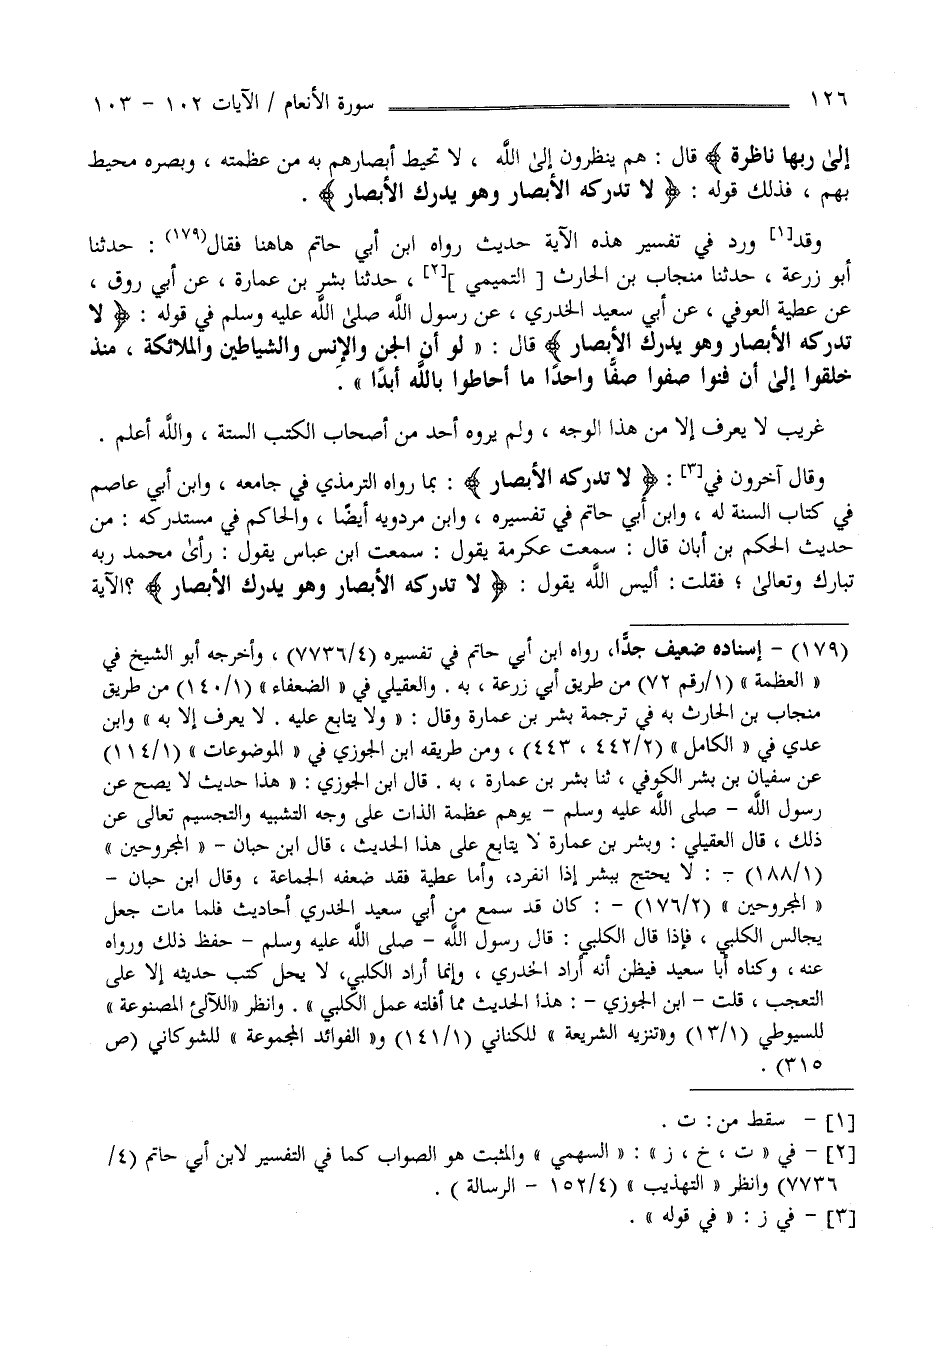 ١٢٦ سورة الأنعام / الآيات ١٠٢ – ١٠٣
إلىٰ ربها ناظرة ﴾ قال : هم ينظرون إلىٰ اللَّه ، لا تحيط أبصارهم به من عظمته ، وبصره محيط
بهم ، فذلك قوله : ﴿ لا تدركه الأبصار وهو يدرك الأبصار ﴾ .
وقد[١] ورد في تفسير هذه الآية حديث رواه ابن أبي حاتم هاهنا فقال(١٧٩) : حدثنا
أبو زرعة ، حدثنا منجاب بن الحارث [ التميمي ][٢] ، حدثنا بشر بن عمارة ، عن أبي روق ،
عن عطية العوفي ، عن أبي سعيد الخدري ، عن رسول اللَّه صلىٰ اللَّه عليه وسلم في قوله : ﴿ لا
تدركه الأبصار وهو يدرك الأبصار ﴾ قال : « لو أن الجن والإنس والشياطين والملائكة ، منذ
خلقوا إلىٰ أن فنوا صفوا صفًّا واحدًا ما أحاطوا باللَّه أبدًا » .
غريب لا يعرف إلا من هذا الوجه ، ولم يروه أحد من أصحاب الكتب الستة ، واللَّه أعلم .
وقال آخرون في[٣] : ﴿ لا تدركه الأبصار ﴾ : بما رواه الترمذي في جامعه ، وابن أبي عاصم
في كتاب السنة له ، وابن أبي حاتم في تفسيره ، وابن مردويه أيضًا ، والحاكم في مستدركه : من
حديث الحكم بن أبان قال : سمعت عكرمة يقول : سمعت ابن عباس يقول : رأىٰ محمد ربه
تبارك وتعالىٰ ؛ فقلت : أليس اللَّه يقول : ﴿ لا تدركه الأبصار وهو يدرك الأبصار ﴾ ؟الآية
(١٧٩) – إسناده ضعيف جدًّا، رواه ابن أبي حاتم في تفسيره (٤/٧٧٣٦) ، وأخرجه أبو الشيخ في
« العظمة » (١/رقم ٧٢) من طريق أبي زرعة ، به . والعقيلي في « الضعفاء » (١/١٤٠) من طريق
منجاب بن الحارث به في ترجمة بشر بن عمارة وقال : « ولا يتابع عليه . لا يعرف إلا به » وابن
عدي في « الكامل » (٢/٤٤٢ ، ٤٤٣) ، ومن طريقه ابن الجوزي في « الموضوعات » (١/١١٤)
عن سفيان بن بشر الكوفي ، ثنا بشر بن عمارة ، به . قال ابن الجوزي : « هذا حديث لا يصح عن
رسول اللَّه – صلى اللَّه عليه وسلم – يوهم عظمة الذات على وجه التشبيه والتجسيم تعالى عن
ذلك ، قال العقيلي : وبشر بن عمارة لا يتابع على هذا الحديث ، قال ابن حبان – « المجروحين »
(١/١٨٨) – : لا يحتج ببشر إذا انفرد، وأما عطية فقد ضعفه الجماعة ، وقال ابن حبان –
« المجروحين » (٢/١٧٦) – : كان قد سمع من أبي سعيد الخدري أحاديث فلما مات جعل
يجالس الكلبي ، فإذا قال الكلبي : قال رسول اللَّه – صلى اللَّه عليه وسلم – حفظ ذلك ورواه
عنه ، وكناه أبا سعيد فيظن أنه أراد الخدري ، وإنما أراد الكلبي، لا يحل كتب حديثه إلا على
التعجب ، قلت – ابن الجوزي – : هذا الحديث مما أفلته عمل الكلبي » . وانظر «اللآلئ المصنوعة »
للسيوطي (١/١٣) و«تنزيه الشريعة » للكناني (١/١٤١) و« الفوائد المجموعة » للشوكاني (ص
٣١٥) .
[١] – سقط من : ت .
[٢] – في « ت ، خ ، ز » : « السهمي » والمثبت هو الصواب كما في التفسير لابن أبي حاتم (٤/
٧٧٣٦) وانظر « التهذيب » (٤/١٥٢ – الرسالة ) .
[٣] – في ز : « في قوله » .